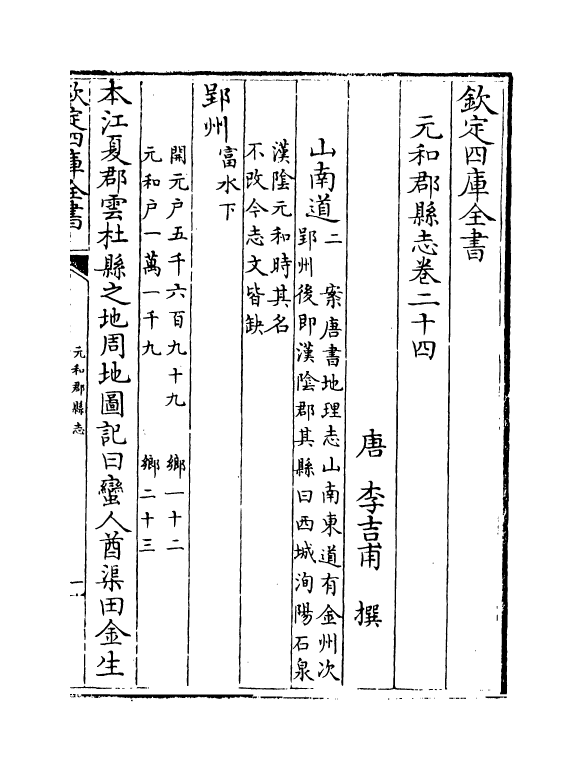 欽定四庫全書
元和郡縣志卷二十四
唐 李吉甫 撰
山南道二 案唐書地理志山南東道有金州次
郢州後即漢陰郡其縣曰西城洵陽石泉
漢陰元和時其名
不改今志文皆缺
郢州 富水下
開元户五千六百九十九 鄉一十二
元和户一萬一千九 鄉二十三
本江夏郡雲杜縣之地周地圖記曰蠻人酋渠田金生
欽定四庫全書 元和郡縣志 一